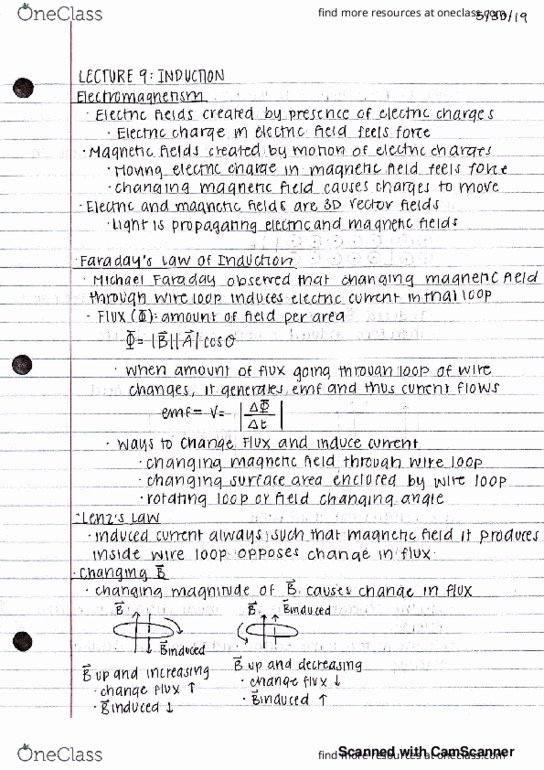 OneClass
find more resources at oneclass.com
5/30/19
LECTURE 9: INDUCTION
Electromagnetism
· Electric fields created by presence of electric charges
· Electric charge in electric field feels force
· Magnetic fields created by motion of electric charges
· Moving electric charge in magnetic field feels force
· changing magnetic field causes charges to move
· Electric and magnetic fields are 3D vector fields
· Light is propagating electric and magnetic fields
Faraday's Law of Induction
· Michael Faraday observed that changing magnetic field
through wire loop induces electric current in that loop
· Flux (Φ): amount of field per area
Φ = |B⃗||A⃗| cosθ
· when amount of flux going through loop of wire
changes, it generates emf and thus current flows
emf = V = |ΔΦ/Δt|
· ways to change flux and induce current
· changing magnetic field through wire loop
· changing surface area enclosed by wire loop
· rotating loop or field changing angle
· Lenz's Law
· induced current always such that magnetic field it produces
inside wire loop opposes change in flux.
· Changing B⃗
· changing magnitude of B⃗ causes change in flux
B⃗
B⃗induced
B⃗ up and increasing
· change flux ↑
· B⃗induced ↓
B⃗
B⃗induced
B⃗ up and decreasing
· change flux ↓
· B⃗induced ↑
OneClass
find more resources at oneclass.com
Scanned with CamScanner